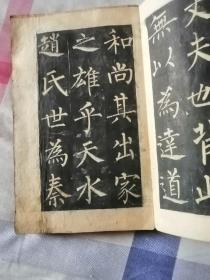 丈夫也背此
無以為達道
和尚其出家
之雄乎天水
趙氏世為秦